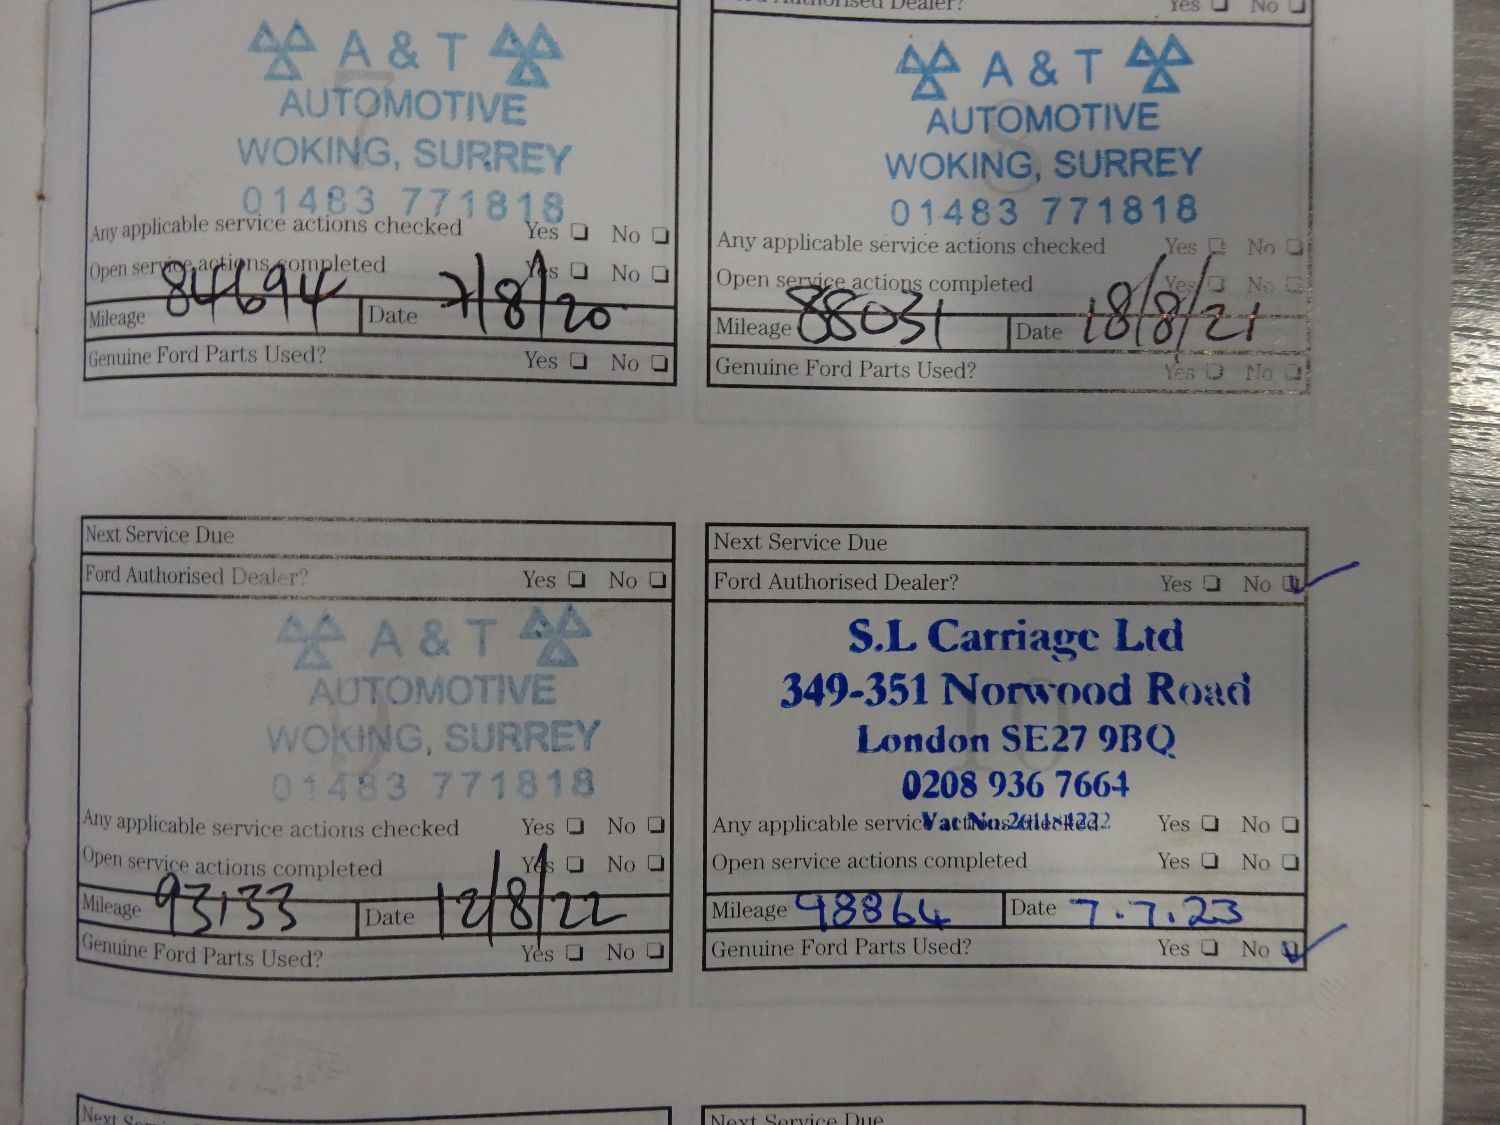 Authorised Dealer? Yes No
A & T
AUTOMOTIVE
WOKING, SURREY
01483 771818
7
Any applicable service actions checked Yes No
Open service actions completed Yes No
Mileage 84694 Date 7/8/20
Genuine Ford Parts Used? Yes No
A & T
AUTOMOTIVE
WOKING, SURREY
01483 771818
8
Any applicable service actions checked Yes No
Open service actions completed Yes No
Mileage 88031 Date 18/8/21
Genuine Ford Parts Used? Yes No
Next Service Due
Ford Authorised Dealer? Yes No
A & T
AUTOMOTIVE
WOKING, SURREY
01483 771818
9
Any applicable service actions checked Yes No
Open service actions completed Yes No
Mileage 93133 Date 12/8/22
Genuine Ford Parts Used? Yes No
Next Service Due
Ford Authorised Dealer? Yes No
S.L Carriage Ltd
349-351 Norwood Road
London SE27 9BQ
0208 936 7664
10
Vat No.
Any applicable service actions checked Yes No
Open service actions completed Yes No
Mileage 98864 Date 7.7.23
Genuine Ford Parts Used? Yes No
Next
Next Service Due